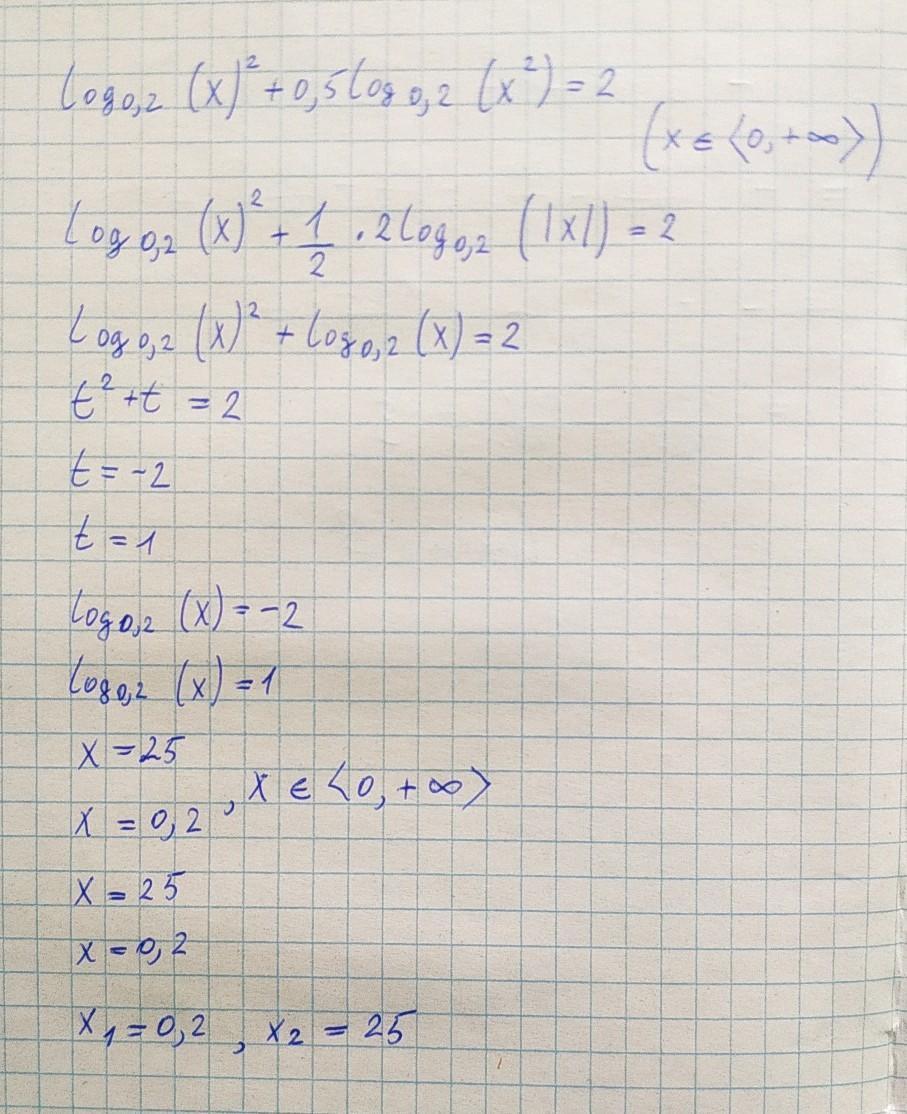 log₀,₂ (x)² + 0,5log₀,₂ (x²) = 2
(x ∈ ⟨0, +∞⟩)
log₀,₂ (x)² + 1/2 · 2log₀,₂ (|x|) = 2
log₀,₂ (x)² + log₀,₂ (x) = 2
t² + t = 2
t = -2
t = 1
log₀,₂ (x) = -2
log₀,₂ (x) = 1
x = 25
x = 0,2 , x ∈ ⟨0, +∞⟩
x = 25
x = 0,2
x₁ = 0,2 , x₂ = 25